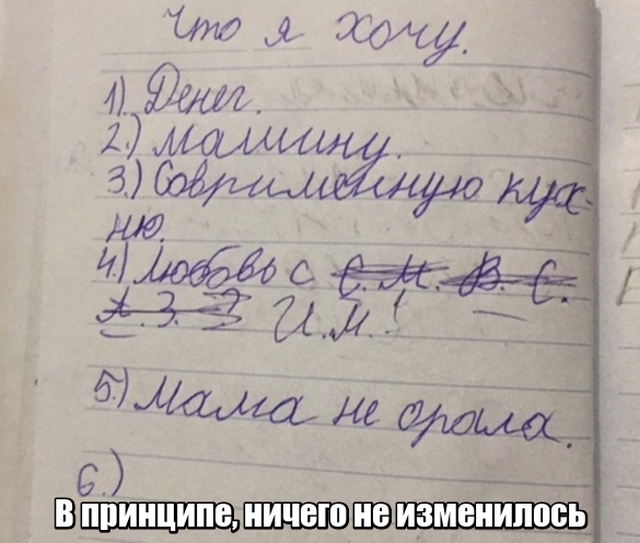 Что я хочу.
1) Денег.
2.) машину.
3.) Соврименную кух-
ню.
4.) Любовь с С.М. В. С.
А.З. И.М.!
5.) Мама не орала.
6.)
В принципе, ничего не изменилось